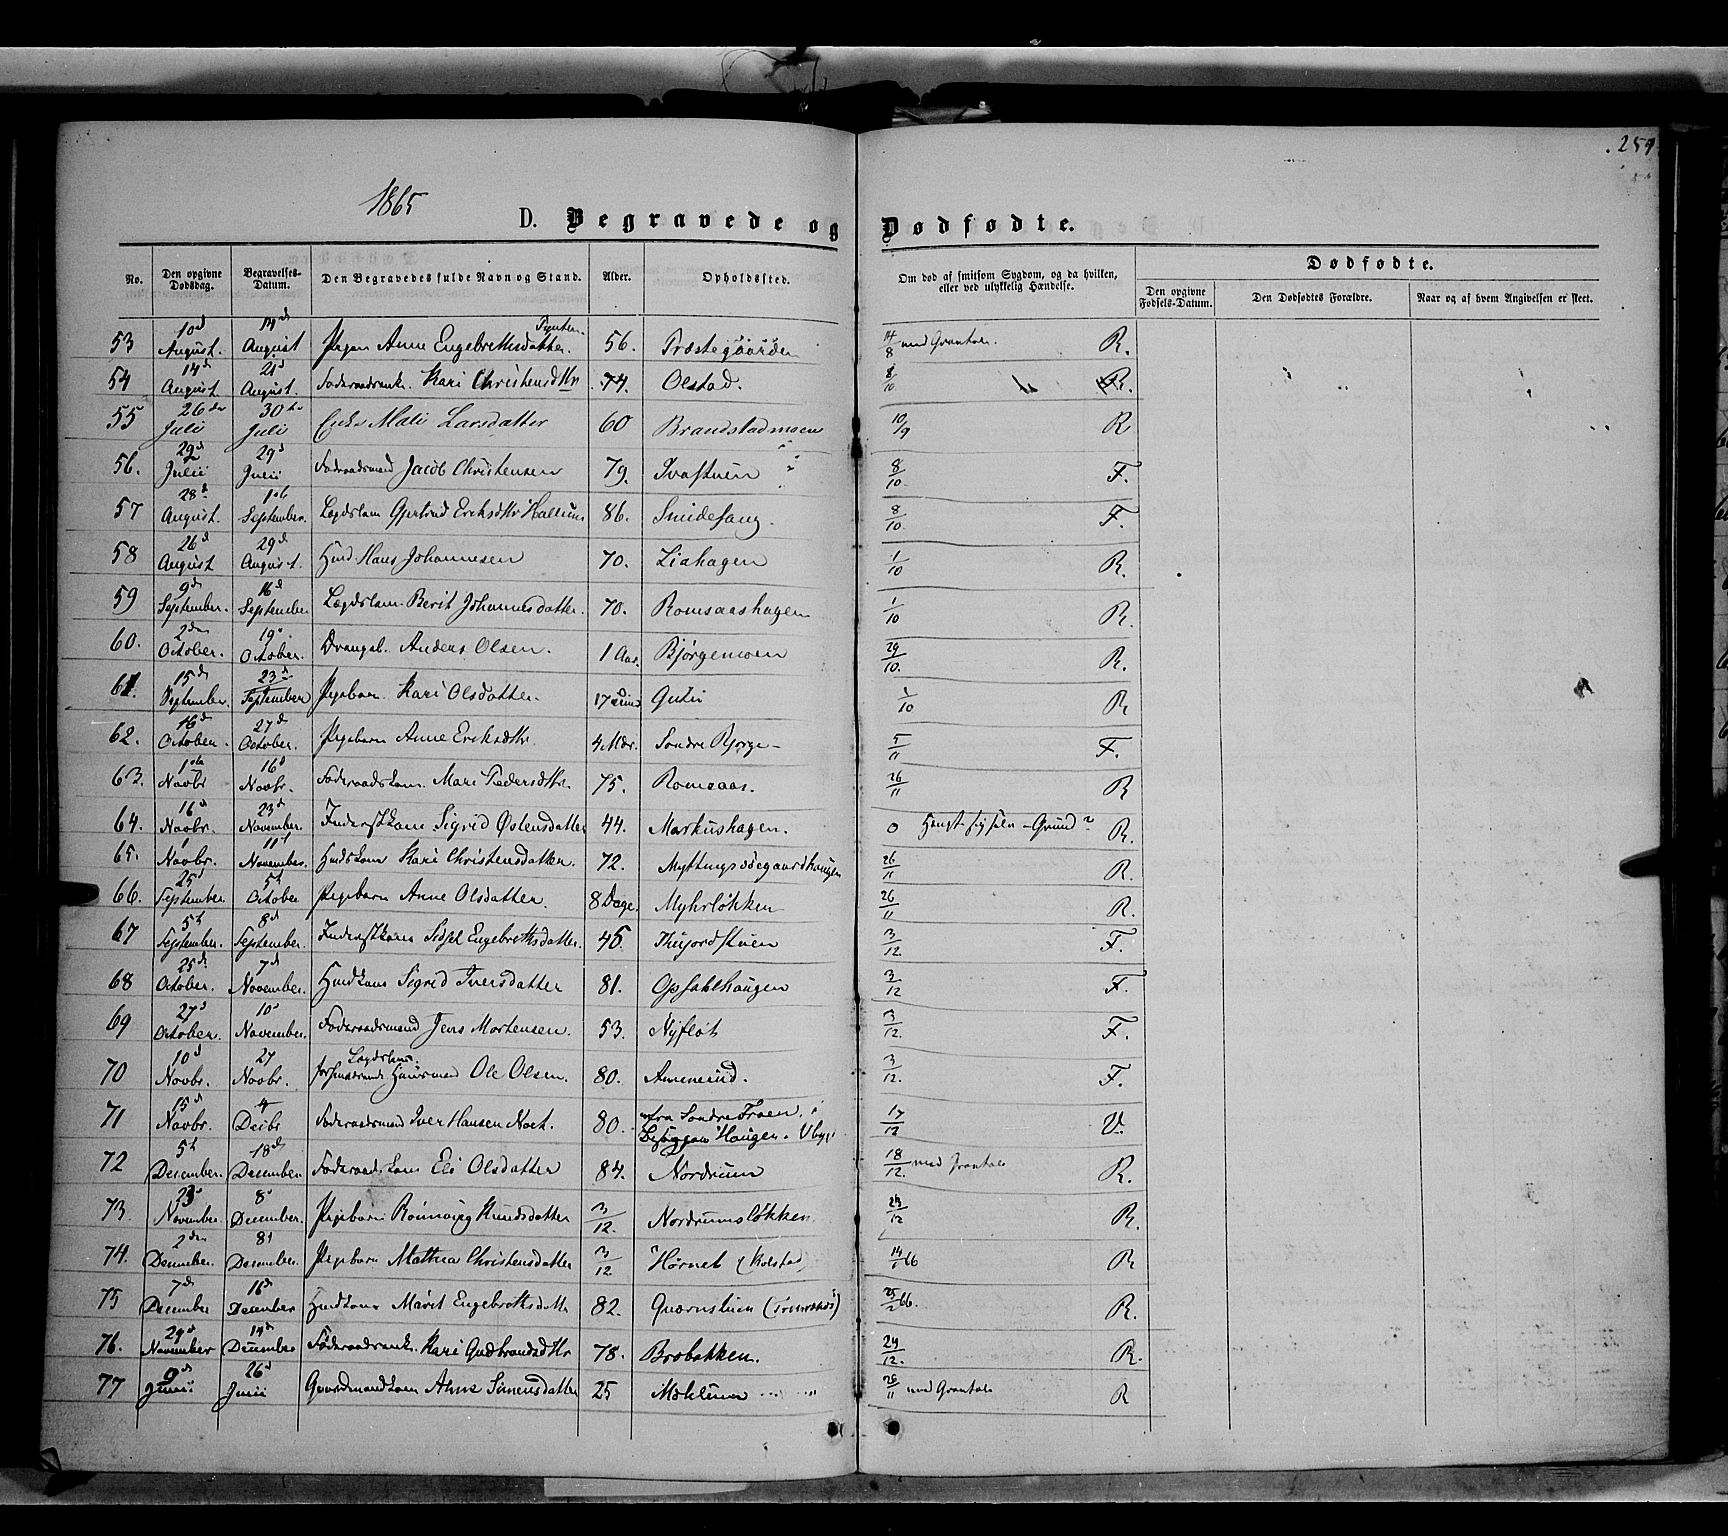 259
1865
D. Begravede og Dødfødte.
No. Den opgivne Dødsdag. Begravelses-Datum. Den Begravedes fulde Navn og Stand. Alder. Opholdssted. Om død af smitsom Sygdom, og da hvilken, eller ved ulykkelig Hændelse. Dødfødte.
Den opgivne Fødsels-Datum. Den Dødfødtes Forældre. Naar og af hvem Angivelsen er skeet.
53 10d August. 14d August Pigen Anne Engebrethsdatter. 56. Præstegaarden 14/8 med Gravtale. R.
54 14d August 21d August. Føderaadsenk. Kari Christensdttr 74. Olstad. 8/10 R.
55 26de Juli 30te Juli Enke Mali Larsdatter 60 Brandstadmoen 10/9 R
56. Julii 29d Julii Føderaadsmand Jacob Christensen 79. 8/10. F.
57 28d August. 1ste September. Lægdslem Gjertrud Eriksdttr 86. Smidesang. 8/10. F.
58 26d August 29d August. Husmd. Hans Johannesen 70. Liahagen 1/10 R.
59 9d September. 16d September Lægdslem. Berit Johannesdatter. 70. Romsaashagen 1/10 R.
60. 2den October. 19d October. Drengeb. Anders Olsen. 1 Aar. Bjørgemoen 29/10. R.
61. 15d September. 23d September Pigebarn Kari Olsdatter. 17 /10 R
62. 16d October. 27d October. Pigebarn Anne Eriksdttr. 4 Mdr. Søndre Bjørge 5/11 F.
63. 1ste Novbr 16d Novbr. Føderaadskone Mari Pedersdttr. 75. Romsaas. 26/11 R
64. 16d Novbr. 23d November. Inderstkone Sigrid Østensdatter 44. Markushagen. 0 R.
65. Novbr. 11t November. Huuskone Kari Christensdatter. 72. Myttingsødegaardhaugen 26/11 R.
66. 25d September 5t October Pigebarn Anne Olsdatter. 8 Dage. Myhrløkken 26/11 R.
67 5t September. 8d September. Inderstkone Sidsel Engebrethsdatter. 45. 3/12. F.
68 25d October. 7d November. Huuskone Sigrid Iversdatter 81. Opsahlhaugen 3/12 F.
69 27d October. 10d November. Føderaadsmand Jens Mortensen. 53. Nyfløt 3/12. F.
70 10d Novbr. 27 Novbr. Lægdslem. forhenværende Huusmand Ole Olsen. 80. Amnerud. 3/12. F.
71 15d Novbr. 4 Decbr Føderaadsmand Iver Hansen 80. fra Søndre Froen. Haugen 17/12 V.
72 5t December. 18d December. Føderaadskone Eli Olsdatter 84. Nordrum 18/12. med Gravtale R.
73. 23d November 8d December. Pigebarn Rønnaug Knudsdatter 3/12. Nordrumsløkken 24/12 R.
74. 2den December. 8t December. Pigebarn Mathea Christensdatter 3/12 Hørnet (Kolstad) 14/1 66 R
75 7d December 16d December Huuskone Marit Engebrethsdttr 82. Quærnstuen 25/2 66. R.
76. 29d November 14d December Føderaadsenk. Kari Gudbrandsdttr 78. Brobakken. 24/12. R.
77 9d Junii 26d Junii Gaardmandskone Anne Simensdatter 25 26/11 med Gravtale R